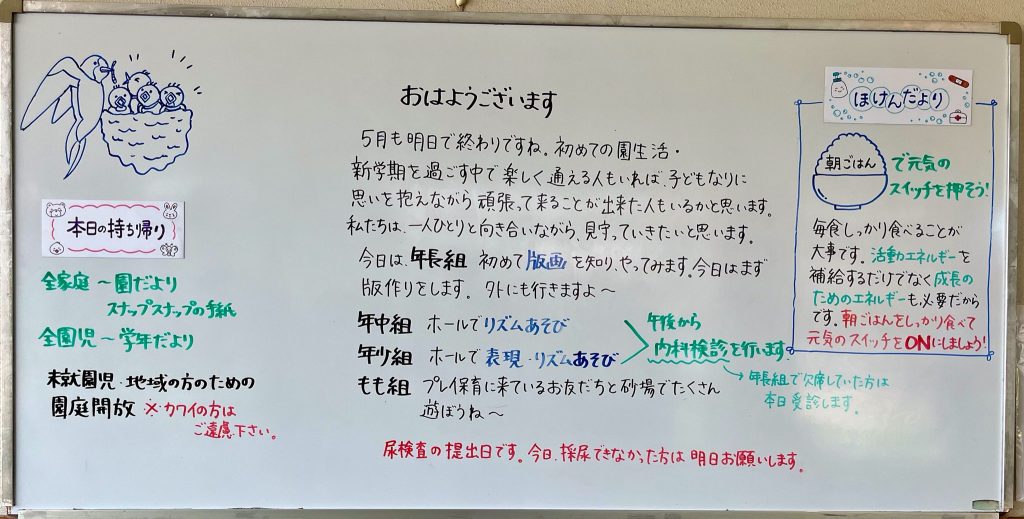 おはようございます
5月も明日で終わりですね。初めての園生活・
新学期を過ごす中で楽しく通える人もいれば、子どもなりに
思いを抱えながら頑張って来ることが出来た人もいるかと思います。
私たちは、一人ひとりと向き合いながら、見守っていきたいと思います。
今日は、年長組 初めて版画を知り、やってみます。今日はまず
版作りをします。外にも行きますよ〜
年中組 ホールでリズムあそび
年少組 ホールで表現・リズムあそび
午後から
内科検診を行います
→年長組で欠席していた方は
本日受診します。
もも組 プレイ保育に来ているお友だちと砂場でたくさん
遊ぼうね〜
尿検査の提出日です。今日、採尿できなかった方は明日お願いします。
本日の持ち帰り
全家庭〜園だより
スナップスナップの手紙
全園児〜学年だより
未就園児・地域の方のための
園庭開放 ※カワイの方は
ご遠慮下さい。
ほけんだより
朝ごはん
で元気の
スイッチを押そう!
毎食しっかり食べることが
大事です。活動エネルギーを
補給するだけでなく成長の
ためのエネルギーも必要だから
です。朝ごはんをしっかり食べて
元気のスイッチをONにしましょう!